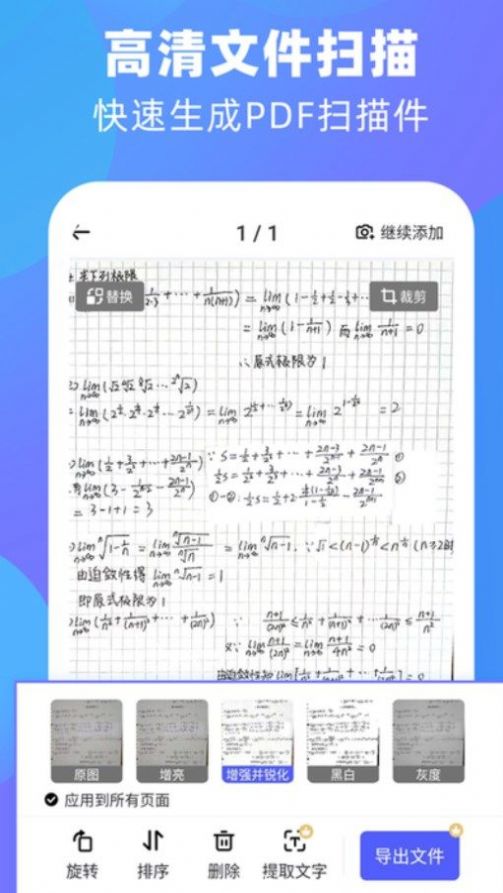 高清文件扫描
快速生成PDF扫描件
1 / 1
继续添加
求下列极限
替换
裁剪
+ ⋯ + 1/n(n+1)) = lim n→∞ (1-1/2+1/2-1/3+⋯
= lim n→∞ (1-1/n+1) 而 lim n→∞ 1/n+1 = 0
∴ 原式极限为1
lim n→∞ (√2 ⁴√2 ⁸√2 ⋯ ²ⁿ√2)
= lim n→∞ (2^1/2·2^1/4·2^1/8 ⋯ 2^1/2ⁿ) = lim n→∞ = lim n→∞ = 2
lim n→∞ (1/2+3/2²+⋯+2n-1/2ⁿ) ∵ S=1/2+3/2²+⋯+2n-3/2ⁿ⁻¹+2n-1/2ⁿ ①
½S=1/2²+3/2³+⋯+2n-3/2ⁿ+2n-1/2ⁿ⁺¹ ②
= 3-1+1 = 3
①-②: ½S=
lim n→∞ ⁿ√1-1/n = lim n→∞ ⁿ√n-1/ⁿ√n = lim n→∞ ⁿ√n-1, ∵ √1<(n-1)^1/n<n^1/n (n≥2时
由迫敛性得 lim n→∞ ⁿ√n-1 = 1
即原式极限为1
lim n→∞ (1/n²+1/(n+1)²+⋯+1/(2n)²) ∵ n+1/(2n)² ≤ 1/n²+1/(n+1)²+⋯+1/(2n)² ≤ n+1/n²
又∵ lim n→∞ n+1/(2n)² = lim n→∞ n+1/4n² = 0
原图
增亮
增强并锐化
黑白
灰度
应用到所有页面
旋转
排序
删除
提取文字
导出文件